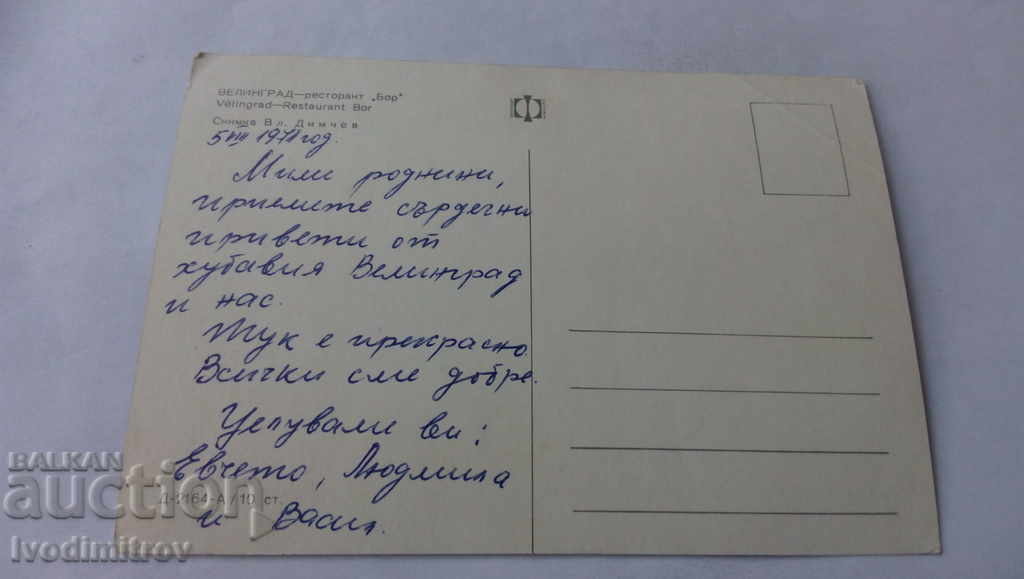 ВЕЛИНГРАД—ресторант „Бор“
Vélingrad—Restaurant Bor
Снимка Вл. Димчев
5 VIII 1971 год.
Мили роднини,
приемите сърдечни
привети от
хубавия Велинград
и нас.
Тук е прекрасно.
Всички сме добре.
Целували ви:
Евчето, Людмила
и Васил.
Д-2164-А /10 ст.
BALKAN
auction
Ivodimitrov